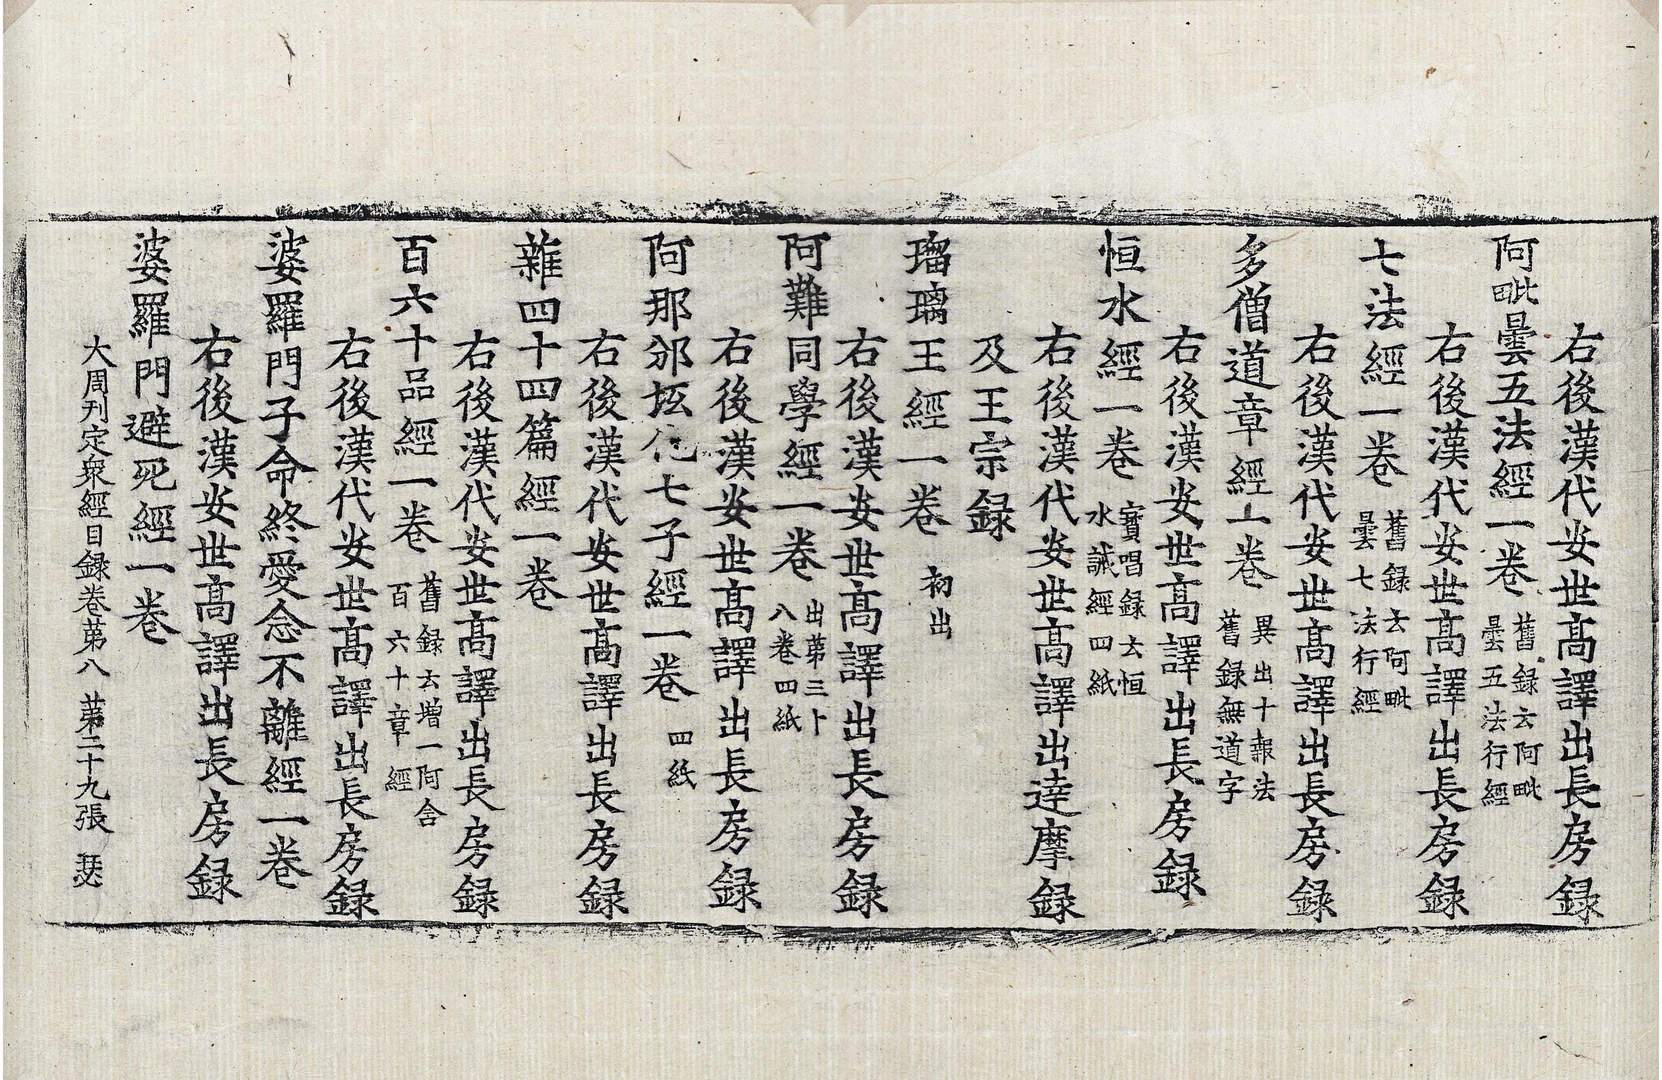 右後漢代安世高譯出長房錄
阿毗曇五法經一卷 舊錄云阿毗曇五法行經
右後漢代安世高譯出長房錄
七法經一卷 舊錄云阿毗曇七法行經
右後漢代安世高譯出長房錄
多僧道章經一卷 異出十報法舊錄無道字
右後漢安世高譯出長房錄
恒水經一卷 寶唱錄云恒水誡經四紙
右後漢代安世高譯出達摩錄
及王宗錄
瑠璃王經一卷 初出
右後漢安世高譯出長房錄
阿難同學經一卷 出第三十八卷四紙
右後漢安世高譯出長房錄
阿那邠坻化七子經一卷 四紙
右後漢代安世高譯出長房錄
雜四十四篇經一卷
右後漢代安世高譯出長房錄
百六十品經一卷 舊錄云增一阿含百六十章經
右後漢代安世高譯出長房錄
婆羅門子命終愛念不離經一卷
右後漢安世高譯出長房錄
婆羅門避死經一卷
大周刊定衆經目錄卷第八 第二十九張 瑟